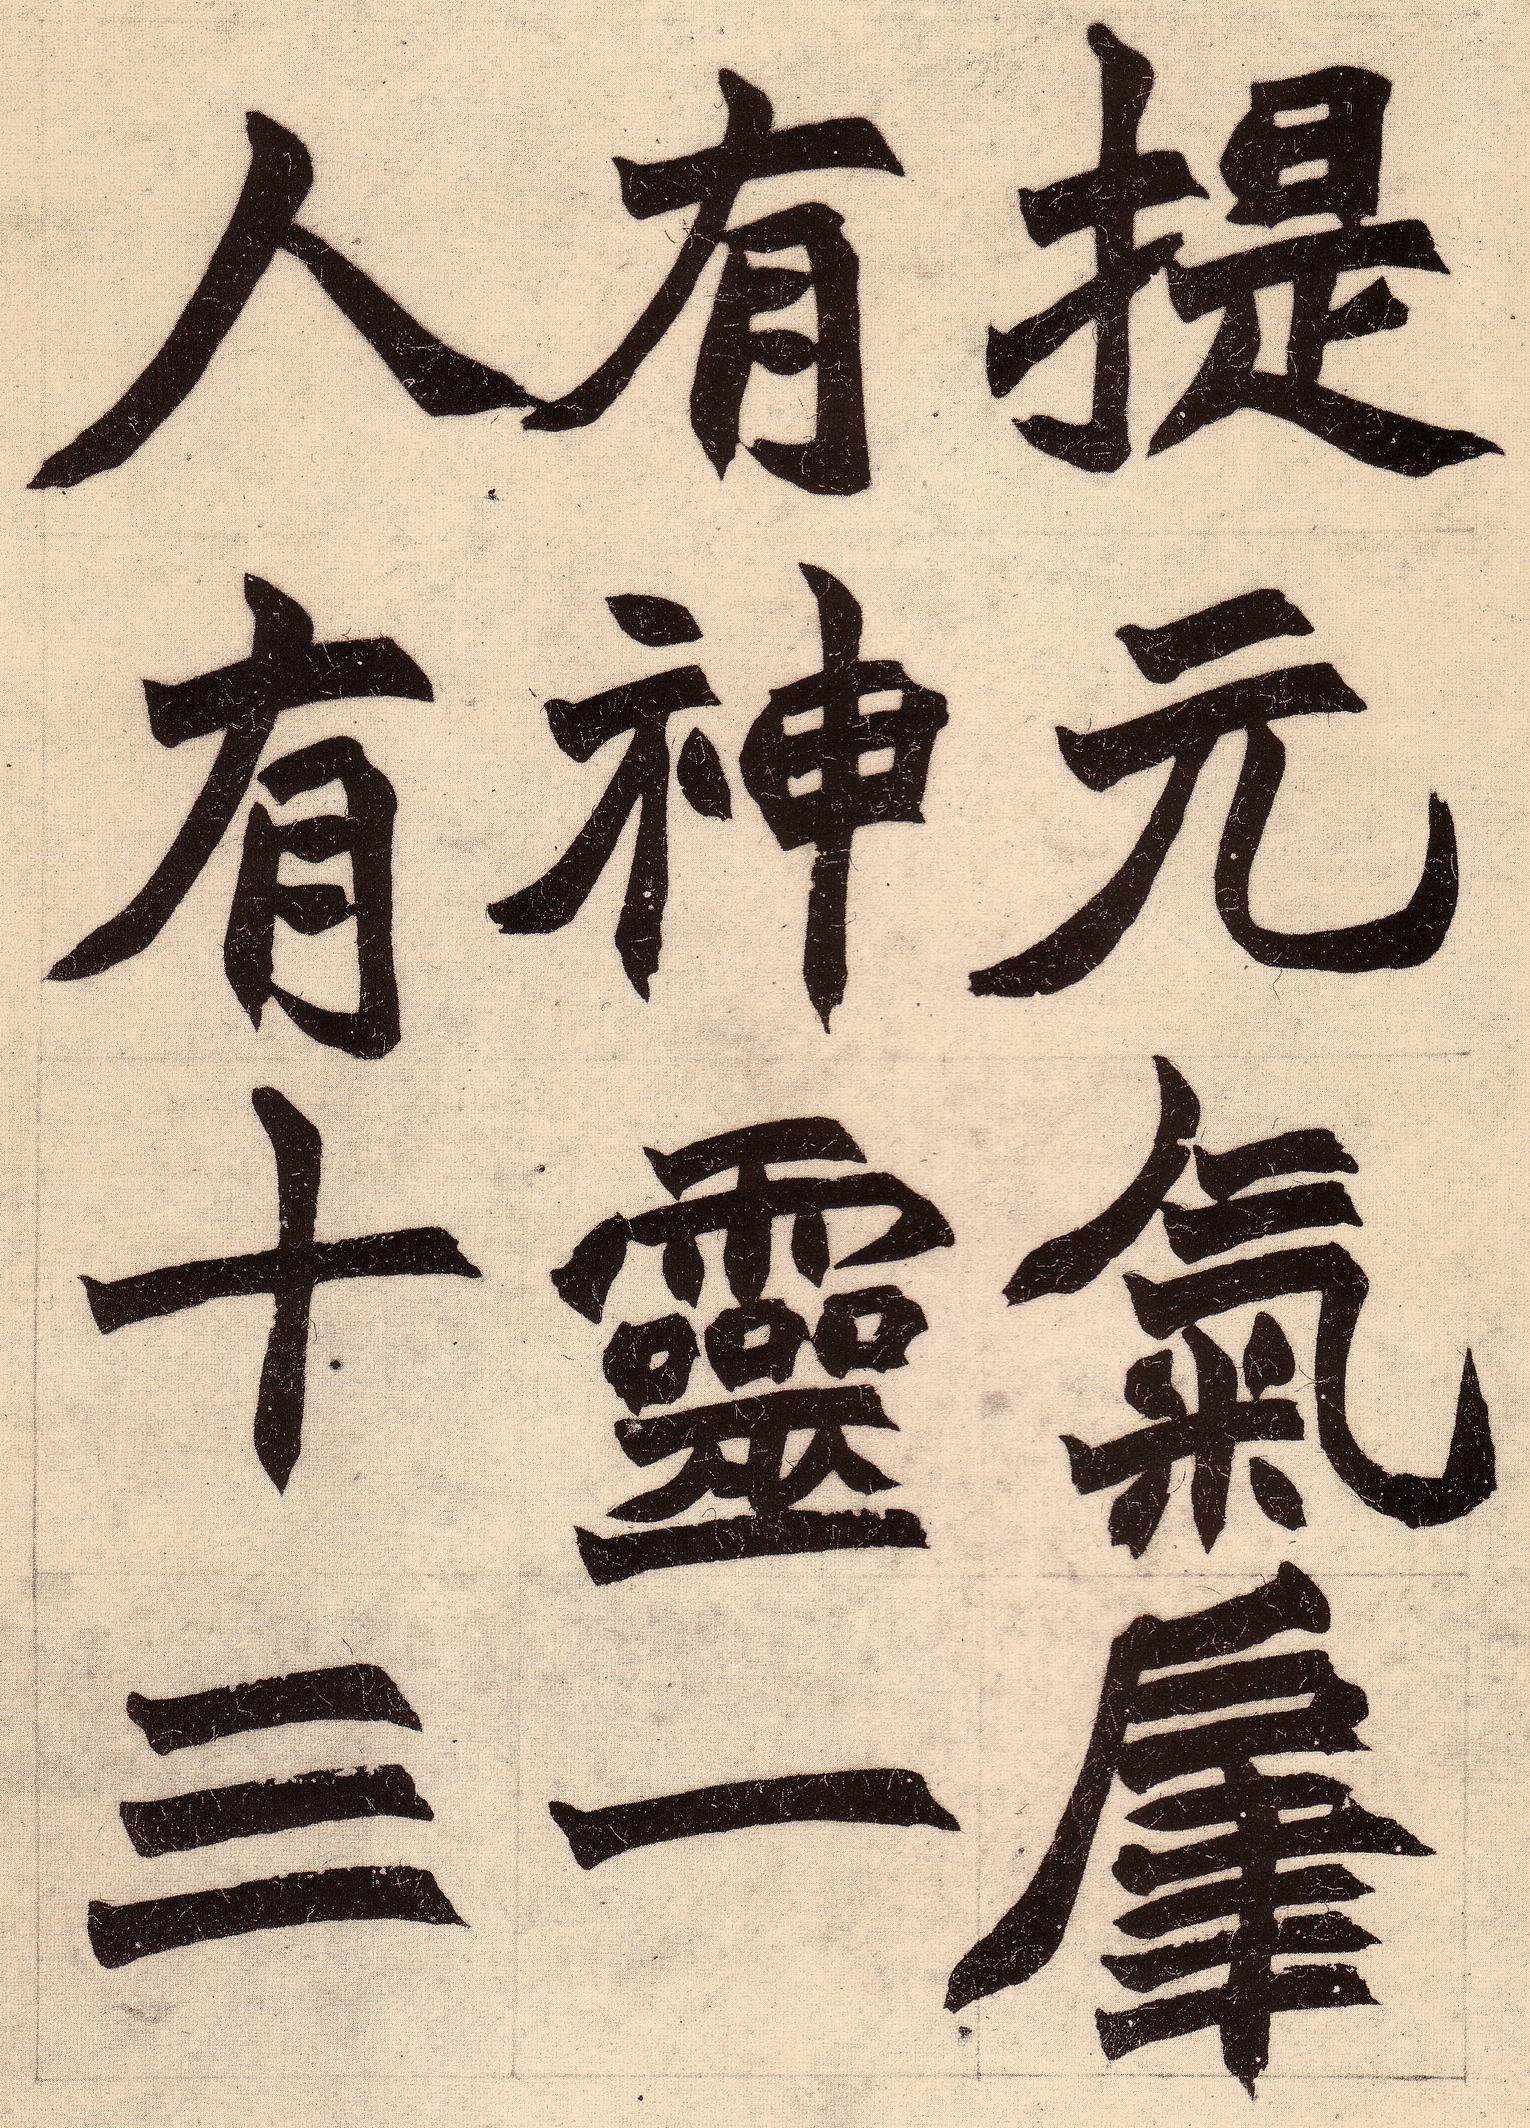 提元氣肇
有神靈一
人有十三